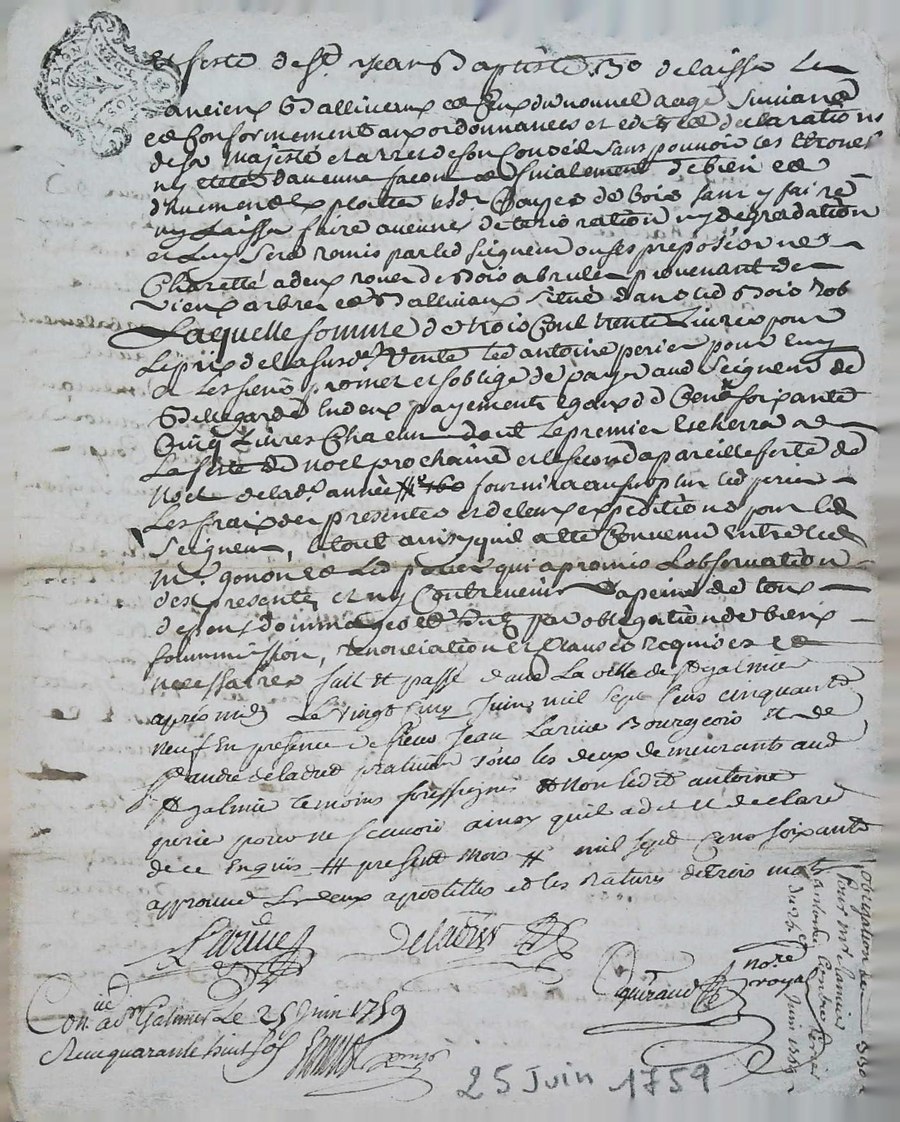 et feste de St Jean Baptiste 1760 delaisse Le
anciens Balliveaux et Ceux du nouvel aage Suivant
et Conformement aux ordonnances et edits et declarations
de sa majesté et arret de son Conseil sans pouvoir les Ebrouer
ny eteter d'aucune façon et finalement de bien et
d'huement Exploiter led. Bois sans y faire
ny Laisser faire aucunes deterioration ny degradation
et Luy sera remis par led seigneur ou ses preposés une
Charette a deux roues de Bois a bruler provenant de
vieux arbres et Balliveaux situé dans led Bois
Laquelle somme de trois Cent trente Livres pour
Le prix de la susde. Vente led antoine perier pour luy
et Les siens promet et s'oblige de payer aud Seigneur de
Bellegarde En deux payements Egaux de Cent soixante
Cinq Livres Chacun dont Le premier Escherra a
La feste de noel prochaine et le second a pareille feste de
noel de lade. année fournira au surplus led perier
Les frais des presentes et de deux expeditions pour led
Seigneur, le tout ainsy quil a ete Convenu Entre led
mr. gonon et Led perier qui a promis L'observation
des presentes et ny Contrevenir a peine de tous
depens dommages et par obligation de biens
soummission, renonciation et Clauses requises et
necessaires fait et passé dans La ville de st galmier
apres midy Le vingt Cinq Juin mil sept Cens cinquante
neuf En presence de sieur Jean Larive Bourgeois et de
andré praticien tous les deux demeurants aud
st galmier temoins soussignés et non led antoine
perier pour ne sçavoir ainsy quil a dit et declaré
de ce Enquis # present mois # mil sept Cens soixante
approuvé Les deux apostilles et les ratures de trois mots
Larive
Guiraud
nore
royal
Conlle a st Galmier Le 25 Juin 1759
Reçu quarante huit sols
25 Juin 1759
obligation de 330
pour mr
Antoine perier
du 25 Juin 1759